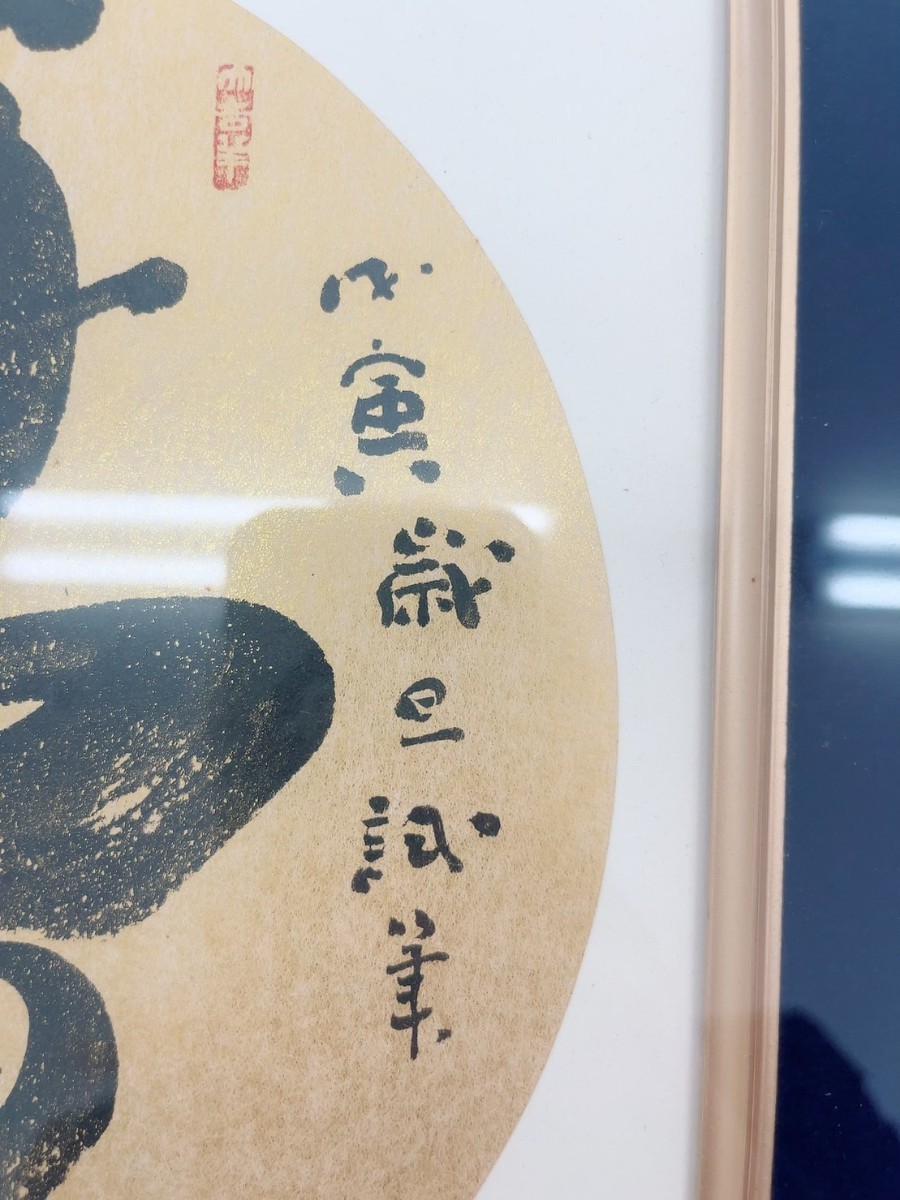 戊寅歲旦試筆